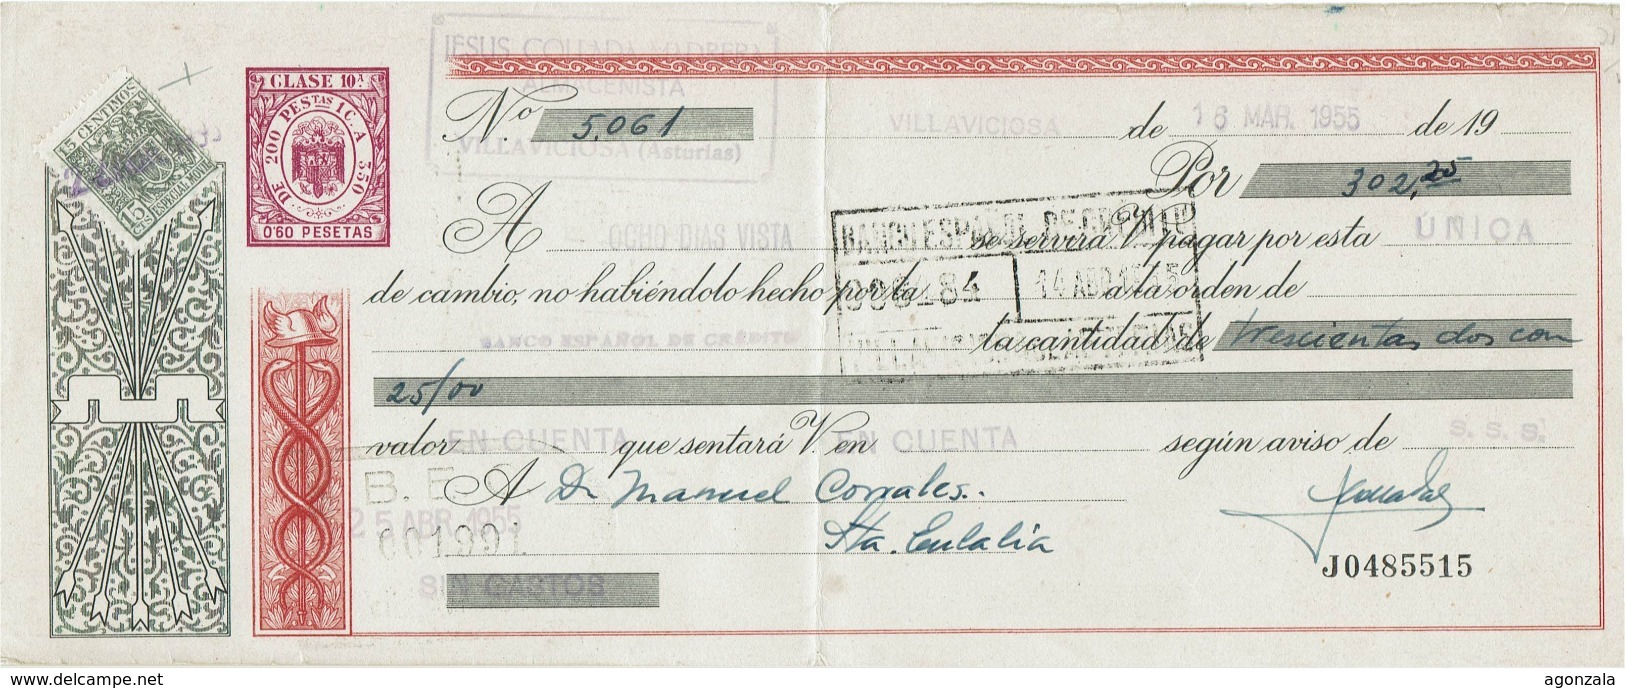 JESUS COLLADA MADRERA
ALMACENISTA
VILLAVICIOSA (Asturias)
15 CENTIMOS
15 CTS ESPECIAL MOVIL
CLASE 10.ª
DE 200 PESTAS 1 C. A 350
0'60 PESETAS
N.º 5.061 VILLAVICIOSA de 16 MAR. 1955 de 19
Por 302,25
A OCHO DIAS VISTA se servirá V. pagar por esta ÚNICA
de cambio, no habiéndolo hecho por la a la orden de
BANCO ESPAÑOL DE CRÉDITO la cantidad de trescientas dos con
25/00
BANCO ESPAÑOL DE CREDITO
14 ABR 1955
valor EN CUENTA que sentará V. en EN CUENTA según aviso de S. S. S.
A D. Manuel Corrales.
Sta. Eulalia
B. E.
25 ABR 1955
001991
SIN GASTOS
J0485515
www.delcampe.net
agonzala